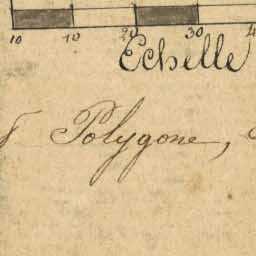 10 10 20 30
Echelle
Polygone,